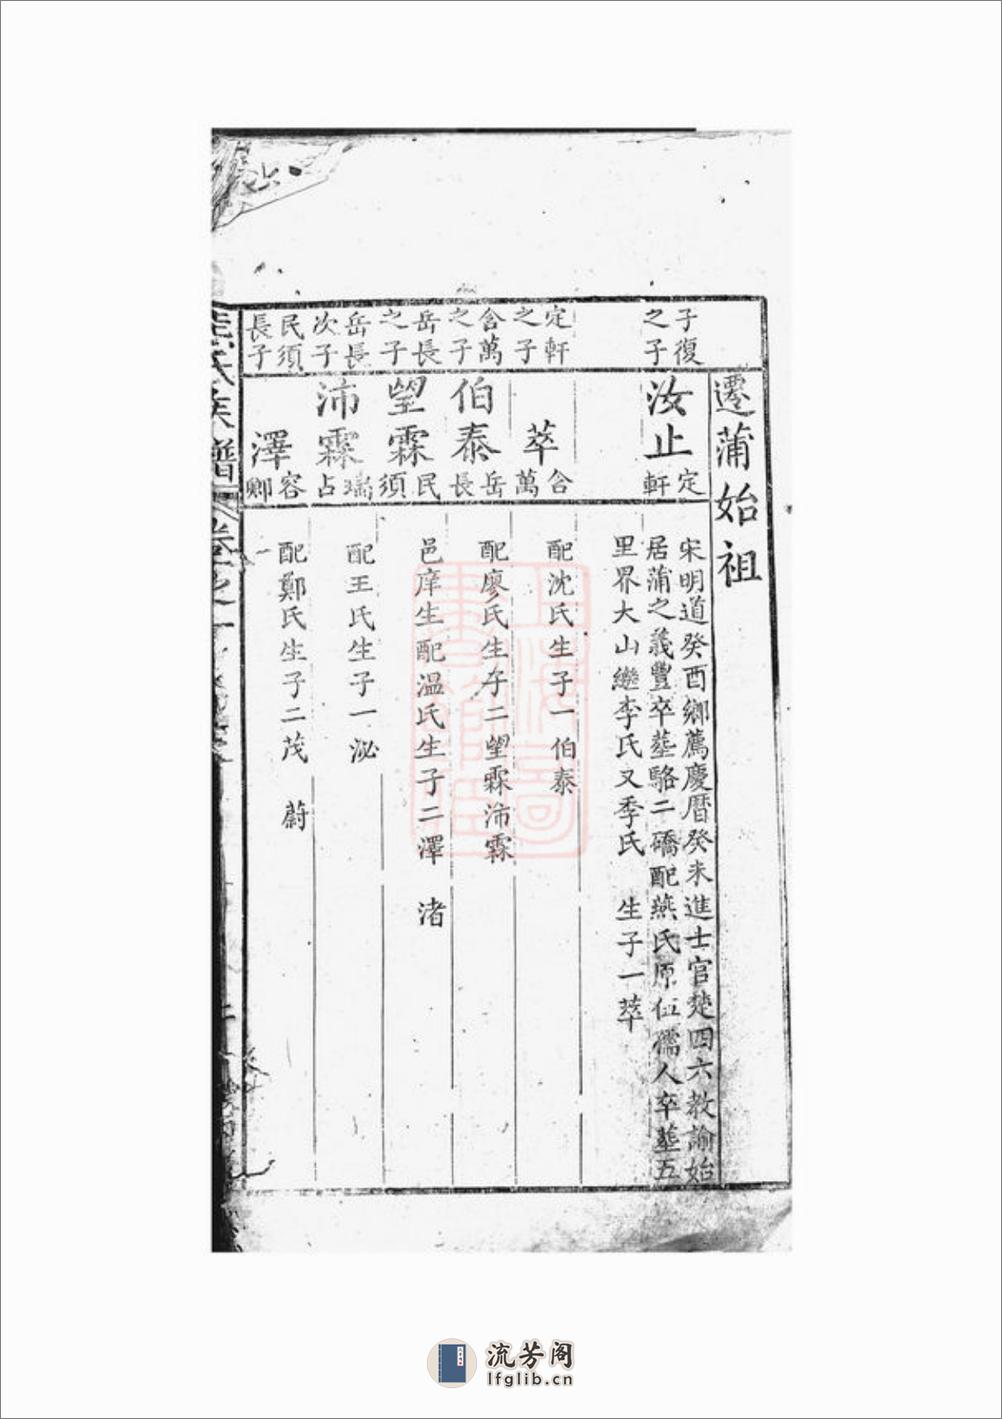 遷蒲始祖
子復之子
汝止
定軒
宋明道癸酉鄉薦慶曆癸未進士官楚四六教諭始
居蒲之義豐卒塟駱二礄配燕氏原伍孺人卒塟五
里界大山繼李氏又季氏 生子一萃
定軒之子
萃
含萬
配沈氏生子一伯泰
含萬之子
伯泰
岳長
配廖氏生子二望霖沛霖
岳長之子
望霖
民須
邑庠生配溫氏生子二澤 渚
岳長次子
沛霖
瑞占
配王氏生子一泌
民須長子
澤
容卿
配鄭氏生子二茂 蔚
氏族譜
卷之一
上海圖書館藏
流芳阁
lfglib.cn